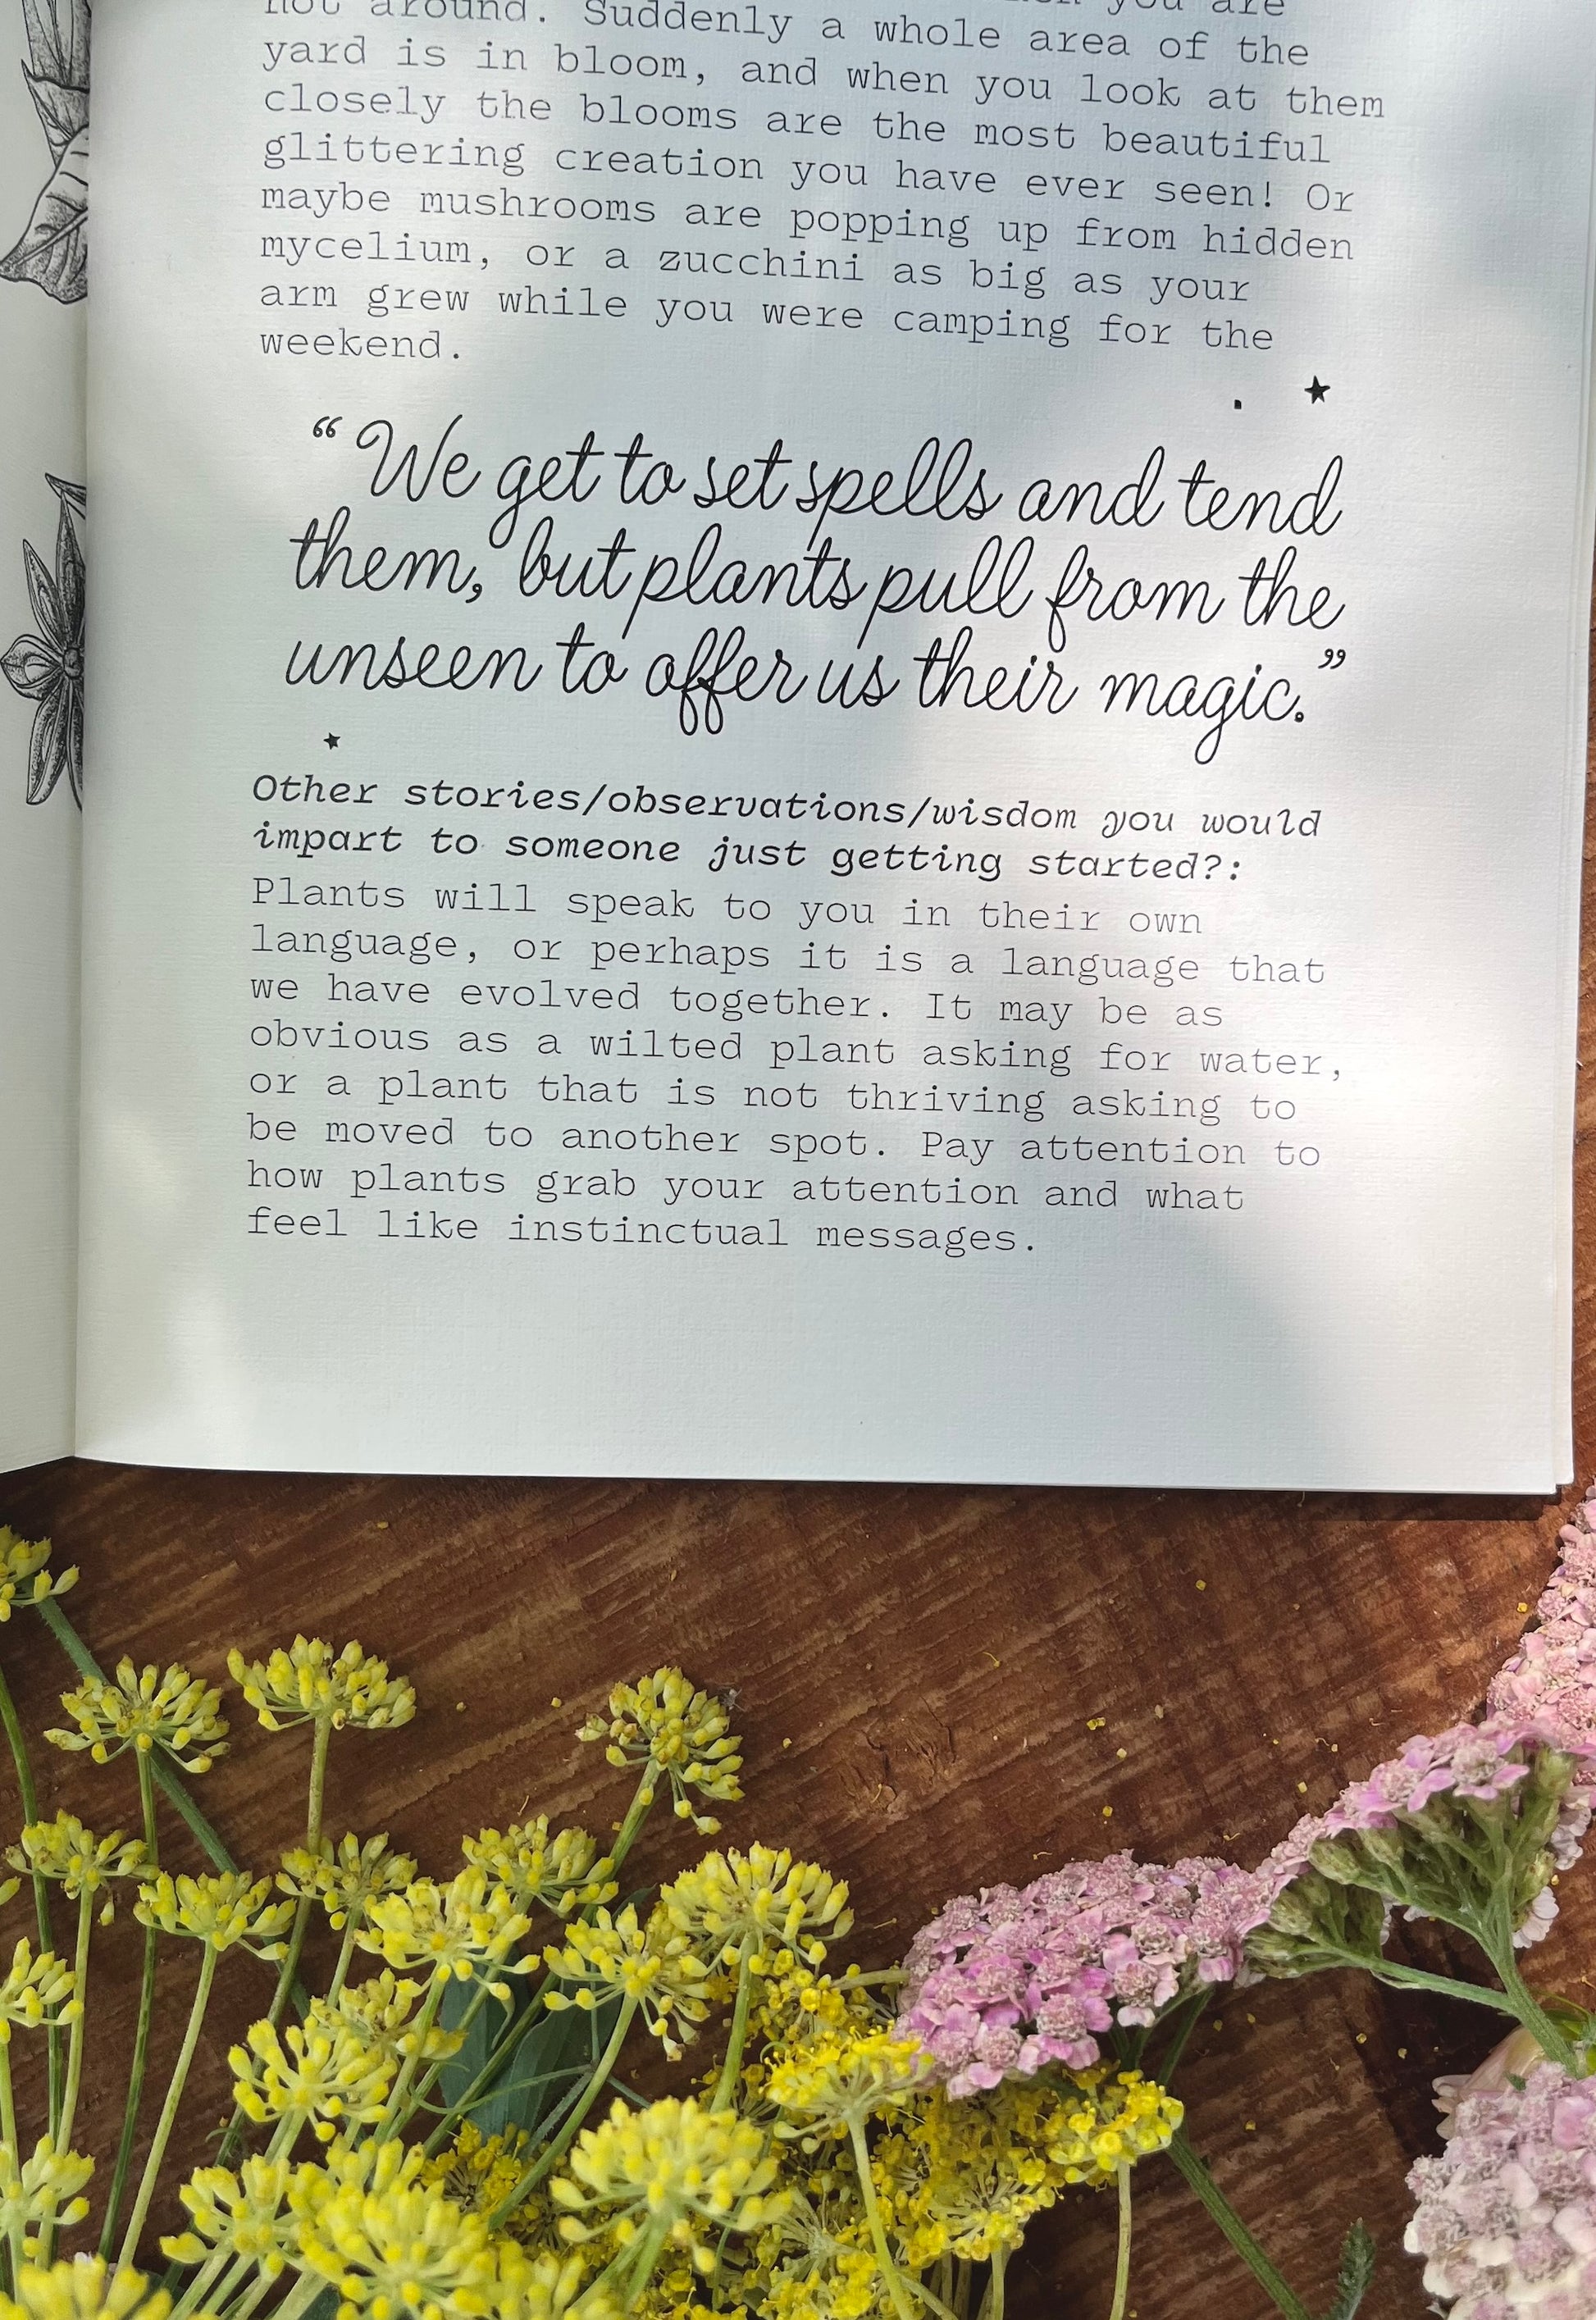 not around. Suddenly a whole area of the
yard is in bloom, and when you look at them
closely the blooms are the most beautiful
glittering creation you have ever seen! Or
maybe mushrooms are popping up from hidden
mycelium, or a zucchini as big as your
arm grew while you were camping for the
weekend.
“We get to set spells and tend
them, but plants pull from the
unseen to offer us their magic.”
Other stories/observations/wisdom you would
impart to someone just getting started?:
Plants will speak to you in their own
language, or perhaps it is a language that
we have evolved together. It may be as
obvious as a wilted plant asking for water,
or a plant that is not thriving asking to
be moved to another spot. Pay attention to
how plants grab your attention and what
feel like instinctual messages.